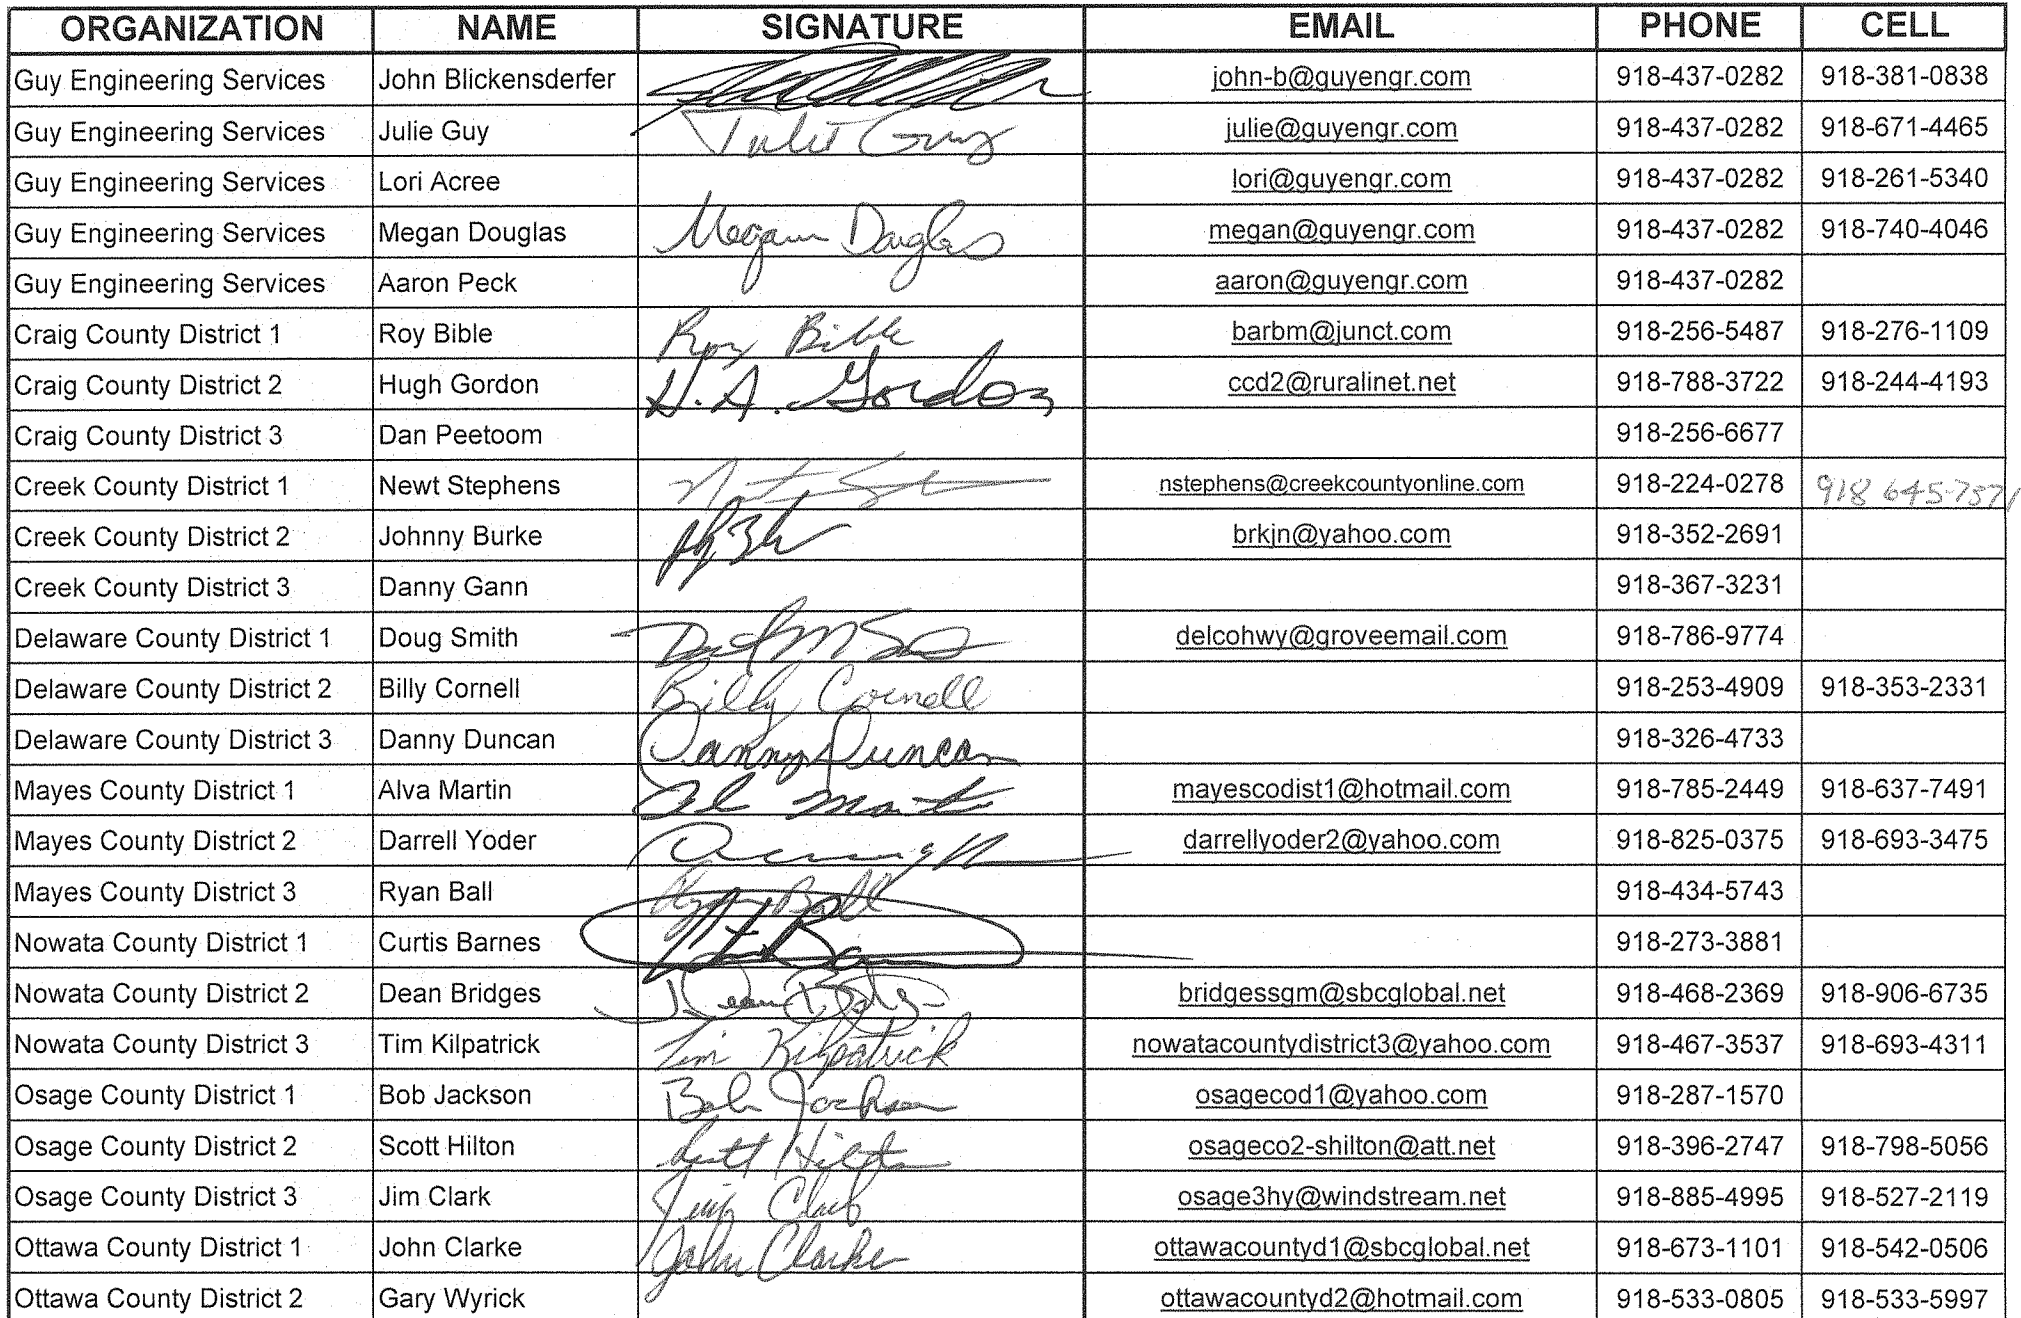 ORGANIZATION NAME SIGNATURE EMAIL PHONE CELL
Guy Engineering Services John Blickensderfer john-b@guyengr.com 918-437-0282 918-381-0838
Guy Engineering Services Julie Guy Julie Guy julie@guyengr.com 918-437-0282 918-671-4465
Guy Engineering Services Lori Acree lori@guyengr.com 918-437-0282 918-261-5340
Guy Engineering Services Megan Douglas Megan Douglas megan@guyengr.com 918-437-0282 918-740-4046
Guy Engineering Services Aaron Peck aaron@guyengr.com 918-437-0282
Craig County District 1 Roy Bible Roy Bible barbm@junct.com 918-256-5487 918-276-1109
Craig County District 2 Hugh Gordon H. A. Gordon ccd2@ruralinet.net 918-788-3722 918-244-4193
Craig County District 3 Dan Peetoom 918-256-6677
Creek County District 1 Newt Stephens nstephens@creekcountyonline.com 918-224-0278 918 645-7571
Creek County District 2 Johnny Burke brkjn@yahoo.com 918-352-2691
Creek County District 3 Danny Gann 918-367-3231
Delaware County District 1 Doug Smith delcohwy@groveemail.com 918-786-9774
Delaware County District 2 Billy Cornell Billy Cornell 918-253-4909 918-353-2331
Delaware County District 3 Danny Duncan Danny Duncan 918-326-4733
Mayes County District 1 Alva Martin mayescodist1@hotmail.com 918-785-2449 918-637-7491
Mayes County District 2 Darrell Yoder darrellyoder2@yahoo.com 918-825-0375 918-693-3475
Mayes County District 3 Ryan Ball Ryan Ball 918-434-5743
Nowata County District 1 Curtis Barnes 918-273-3881
Nowata County District 2 Dean Bridges bridgessgm@sbcglobal.net 918-468-2369 918-906-6735
Nowata County District 3 Tim Kilpatrick Tim Kilpatrick nowatacountydistrict3@yahoo.com 918-467-3537 918-693-4311
Osage County District 1 Bob Jackson Bob Jackson osagecod1@yahoo.com 918-287-1570
Osage County District 2 Scott Hilton Scott Hilton osageco2-shilton@att.net 918-396-2747 918-798-5056
Osage County District 3 Jim Clark Jim Clark osage3hy@windstream.net 918-885-4995 918-527-2119
Ottawa County District 1 John Clarke John Clarke ottawacountyd1@sbcglobal.net 918-673-1101 918-542-0506
Ottawa County District 2 Gary Wyrick ottawacountyd2@hotmail.com 918-533-0805 918-533-5997